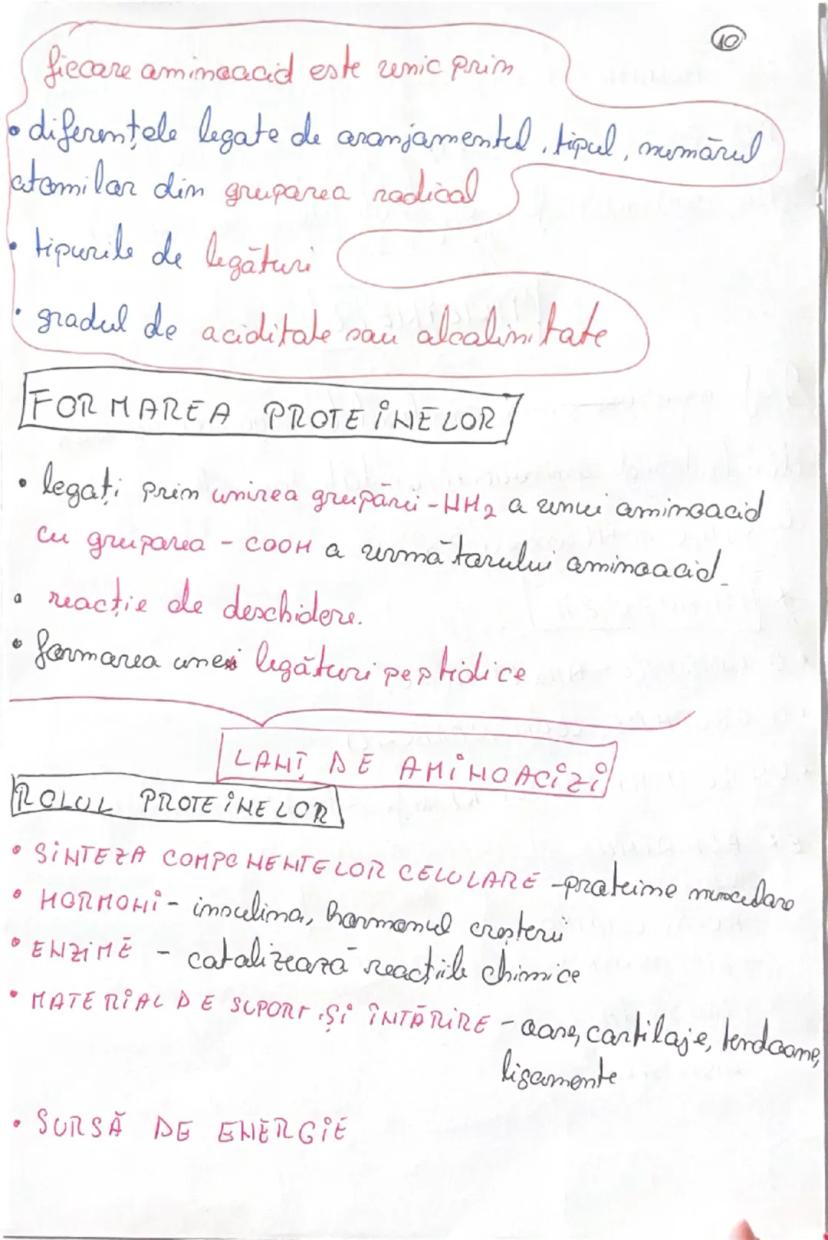 10
fiecare aminoacid este unic prin
• diferențele legate de aranjamentul, tipul, numărul
atomilor din gruparea radical
• tipurile de legături
• gradul de aciditate sau alcalinitate
FORMAREA PROTEINELOR
• legați prin unirea grupării -NH2 a unui aminoacid
cu gruparea - COOH a următorului aminoacid
• reacție de deschidere.
• formarea unei legături peptidice
LANȚ DE AMINOACIZI
ROLUL PROTEINELOR
• SINTEZA COMPONENTELOR CELULARE - proteine musculare
• HORMONI - insulina, hormonul creșterii
• ENZIME - catalizează reacțiile chimice
• MATERIAL DE SUPORT ȘI ÎNTĂRIRE - oase, cartilaje, tendoane,
ligamente
• SURSĂ DE ENERGIE